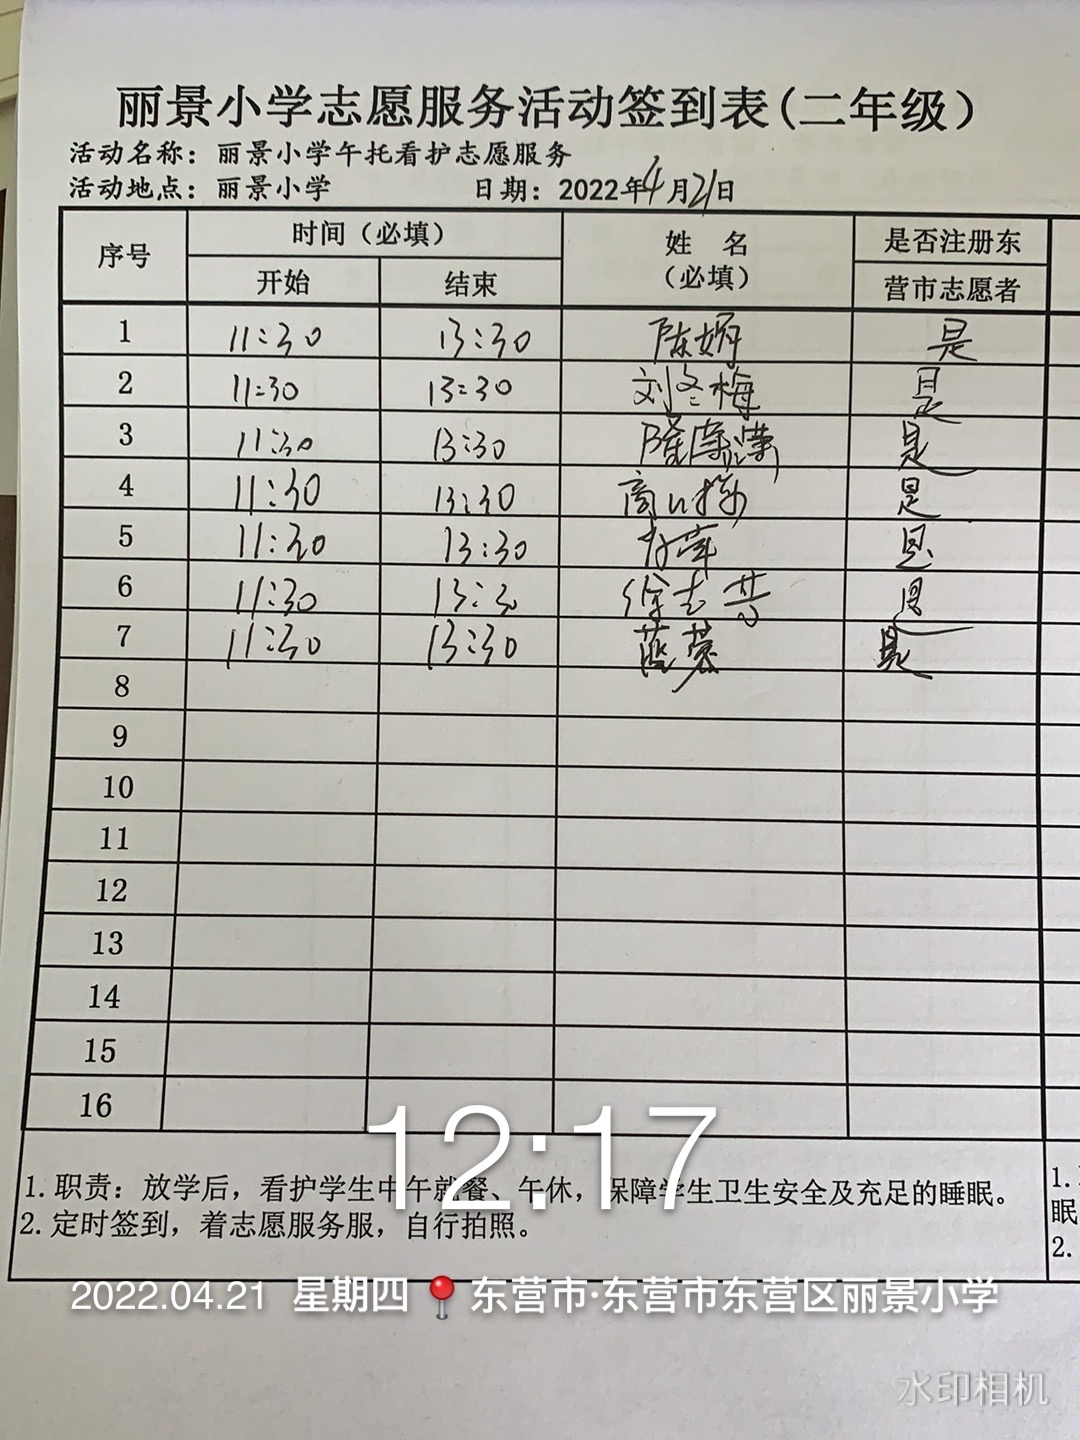 丽景小学志愿服务活动签到表(二年级)
活动名称：丽景小学午托看护志愿服务
活动地点：丽景小学 日期：2022年4月21日
序号 时间（必填） 姓 名 是否注册东
开始 结束 （必填） 营市志愿者
1 11:30 13:30 陈妍 是
2 11:30 13:30 刘冬梅 是
3 11:30 13:30 是
4 11:30 13:30 是
5 11:30 13:30 是
6 11:30 13:30 徐志芳 是
7 11:30 13:30 是
8
9
10
11
12
13
14
15
16
12:17
1.职责：放学后，看护学生中午就餐、午休，保障学生卫生安全及充足的睡眠。
2.定时签到，着志愿服务服，自行拍照。
1.
眠
2.
2022.04.21 星期四 东营市·东营市东营区丽景小学
水印相机